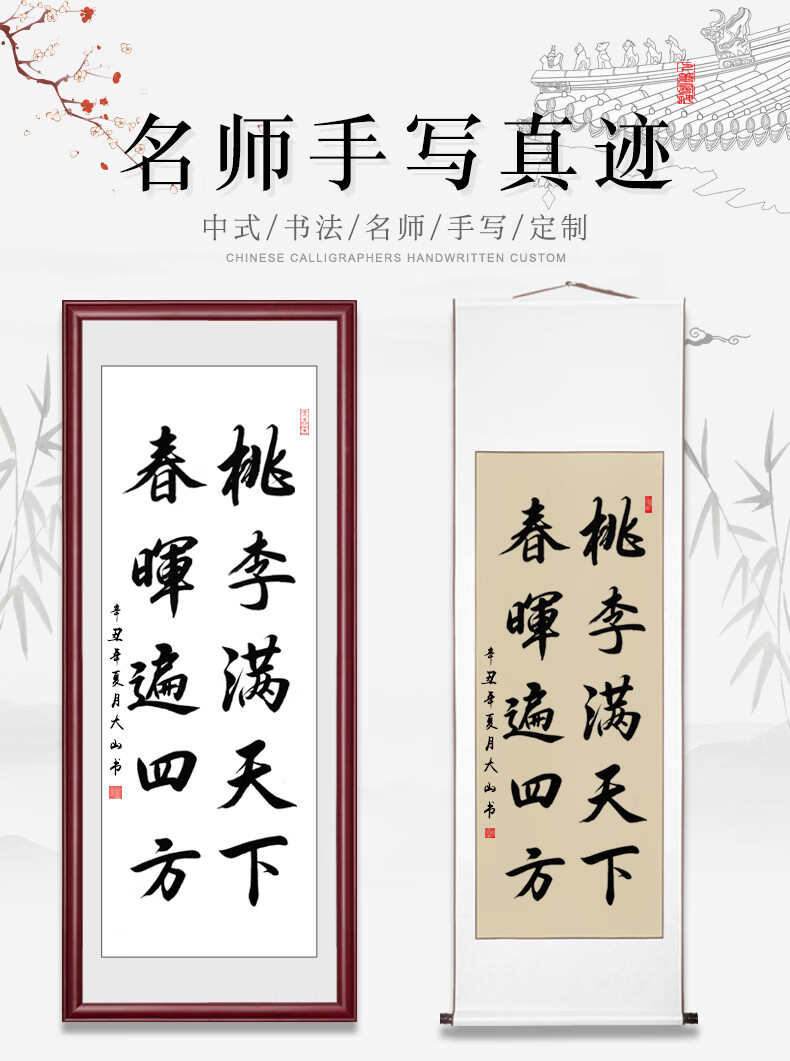 名师手写真迹
中式/书法/名师/手写/定制
CHINESE CALLIGRAPHERS HANDWRITTEN CUSTOM
桃李满天下
春暉遍四方
辛丑年夏月大山书
桃李满天下
春暉遍四方
辛丑年夏月大山书